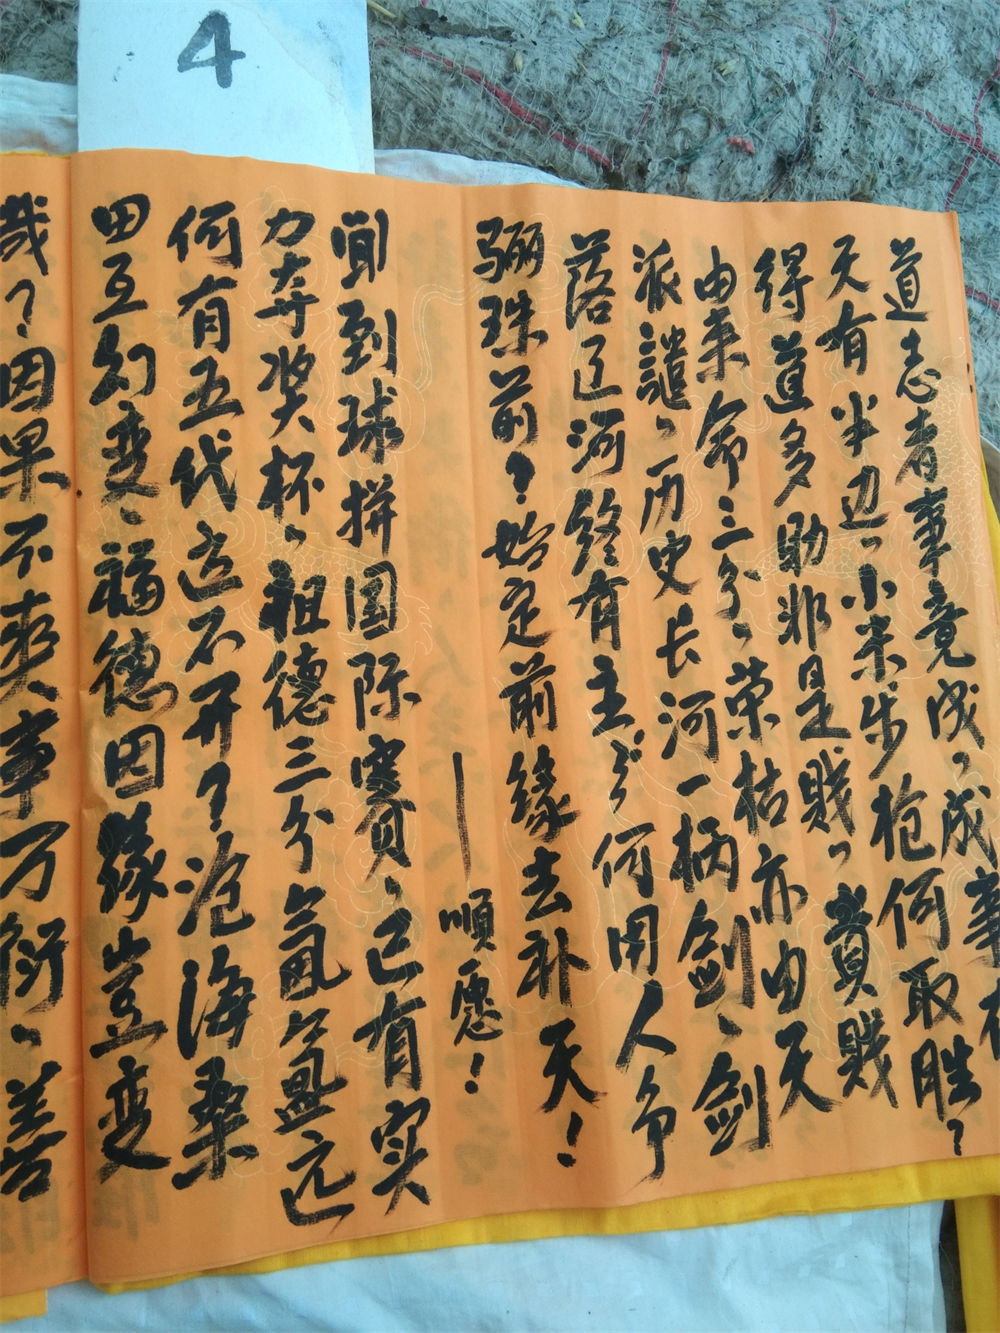 4
道志者事竟成、成事在
天有半边、小米步枪何取胜？
得道多助非是贱、贵贱
由来命三分、荣枯亦由天
派谴、历史长河一柄剑、剑
落辽河终有主，何用人争
骊珠前？始定前缘去补天！
——顺愿！
闻到球拼国际赛、已有实
力夺奖杯、祖德三分氤氲运
何有五代运不开？沧海桑
田互幻变、福德因缘岂变
哉？因果不爽事万衍、善